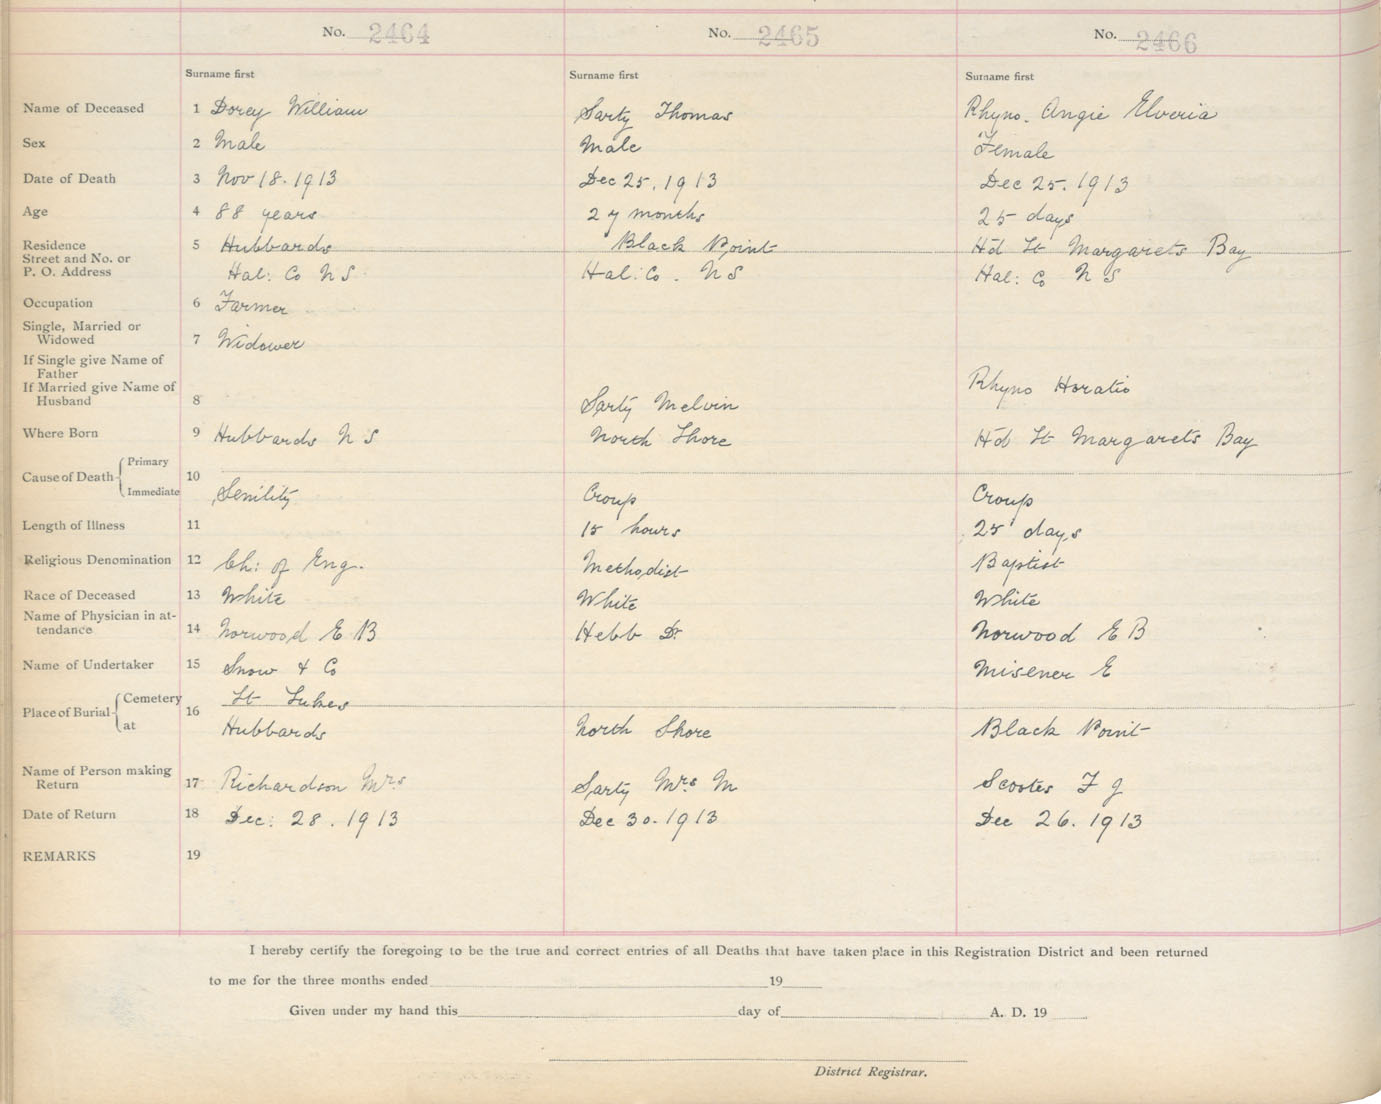 No. 2464 No. 2465 No. 2466
Surname first Surname first Surname first
Name of Deceased 1 Dorey William Sarty Thomas Rhyno. Angie Elveria
Sex 2 Male Male Female
Date of Death 3 Nov 18. 1913 Dec 25. 1913 Dec 25. 1913
Age 4 88 years 27 months 25 days
Residence 5 Hubbards Black Point Hd St Margarets Bay
Street and No. or
P. O. Address Hal: Co N S Hal: Co. N S Hal: Co N S
Occupation 6 Farmer
Single, Married or
Widowed 7 Widower
If Single give Name of
Father
If Married give Name of Rhyno Horatio
Husband 8 Sarty Melvin
Where Born 9 Hubbards N S North Shore Hd St Margarets Bay
Primary
Cause of Death 10
Immediate Senility Croup Croup
Length of Illness 11 15 hours 25 days
Religious Denomination 12 Ch: of Eng. Methodist Baptist
Race of Deceased 13 White White White
Name of Physician in at-
tendance 14 Norwood E B Hebb Dr Norwood E B
Name of Undertaker 15 Snow & Co Misener E
Cemetery St Lukes
Place of Burial 16
at Hubbards North Shore Black Point
Name of Person making
Return 17 Richardson Mrs Sarty Mrs M F J
Date of Return 18 Dec: 28. 1913 Dec 30. 1913 Dec 26. 1913
REMARKS 19
I hereby certify the foregoing to be the true and correct entries of all Deaths that have taken place in this Registration District and been returned
to me for the three months ended 19
Given under my hand this day of A. D. 19
District Registrar.